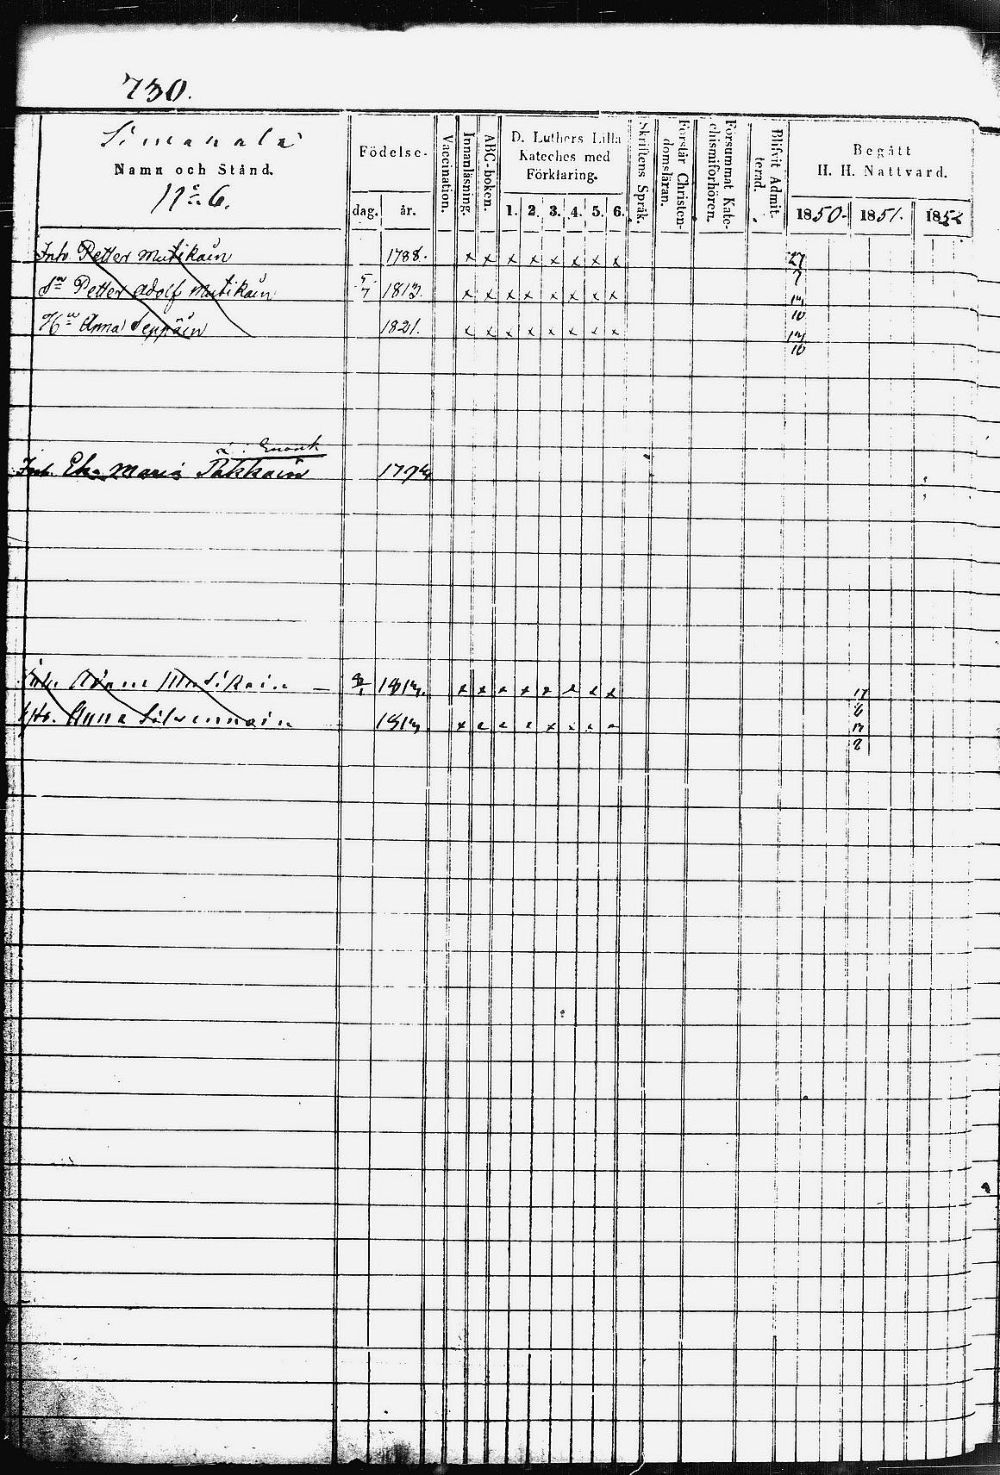 730.
Simanala
Namn och Stånd.
No 6.
Födelse-
dag. år.
Vaccination.
Innanläsning.
ABC-boken.
D. Luthers Lilla
Kateches med
Förklaring.
1. 2. 3. 4. 5. 6.
Skriftens Språk.
Förstår Christen-
domsläran.
Försummat Kate-
chismiförhören.
Blifvit Admit-
terad.
Begått
H. H. Nattvard.
1850. 1851. 1852
Inh. Petter Mutikain 1788. x x x x x x x x 27
7
Sn Petter Adolf Mutikain 5/7 1813. x x x x x x x x
10
Hu Anna Seppäin 1821. x x x x x x x x
10
Enonk
Inh. Maria Pakkain
Inh. Adam Mutikain x x x x x x x x 17
6
Hu. Anna Silvennoin